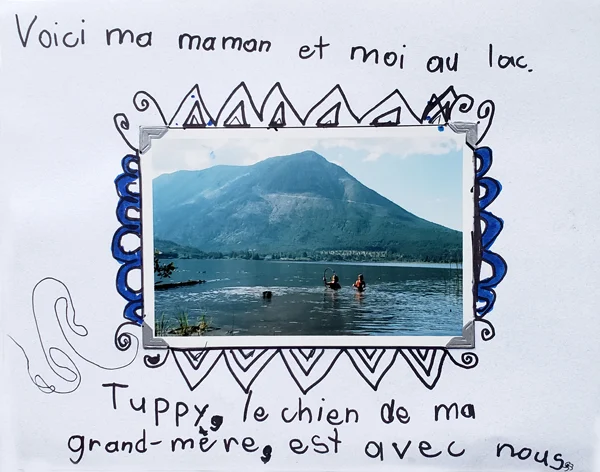 Voici ma maman et moi au lac.
Tuppy, le chien de ma
grand-mère, est avec nous.